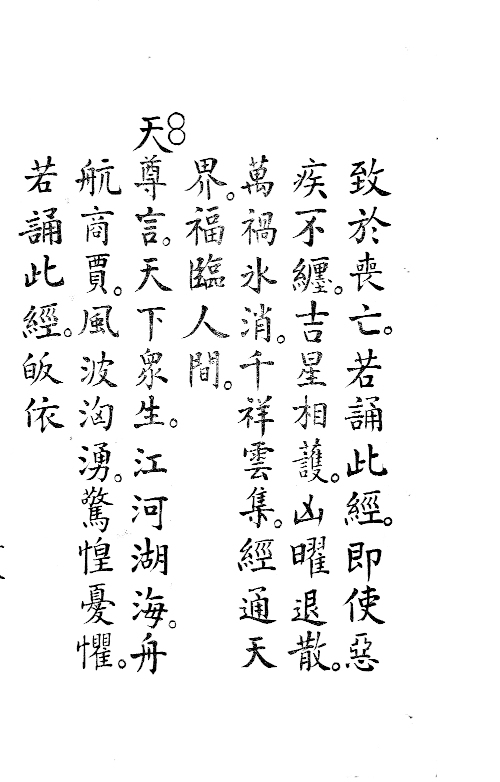 致於喪亡。若誦此經。即使惡
疾不纏。吉星相護。凶曜退散。
萬禍氷消。千祥雲集。經通天
界。福臨人間。
天尊言。天下衆生。江河湖海。舟
航商賈。風波洶湧。驚惶憂懼。
若誦此經。皈依